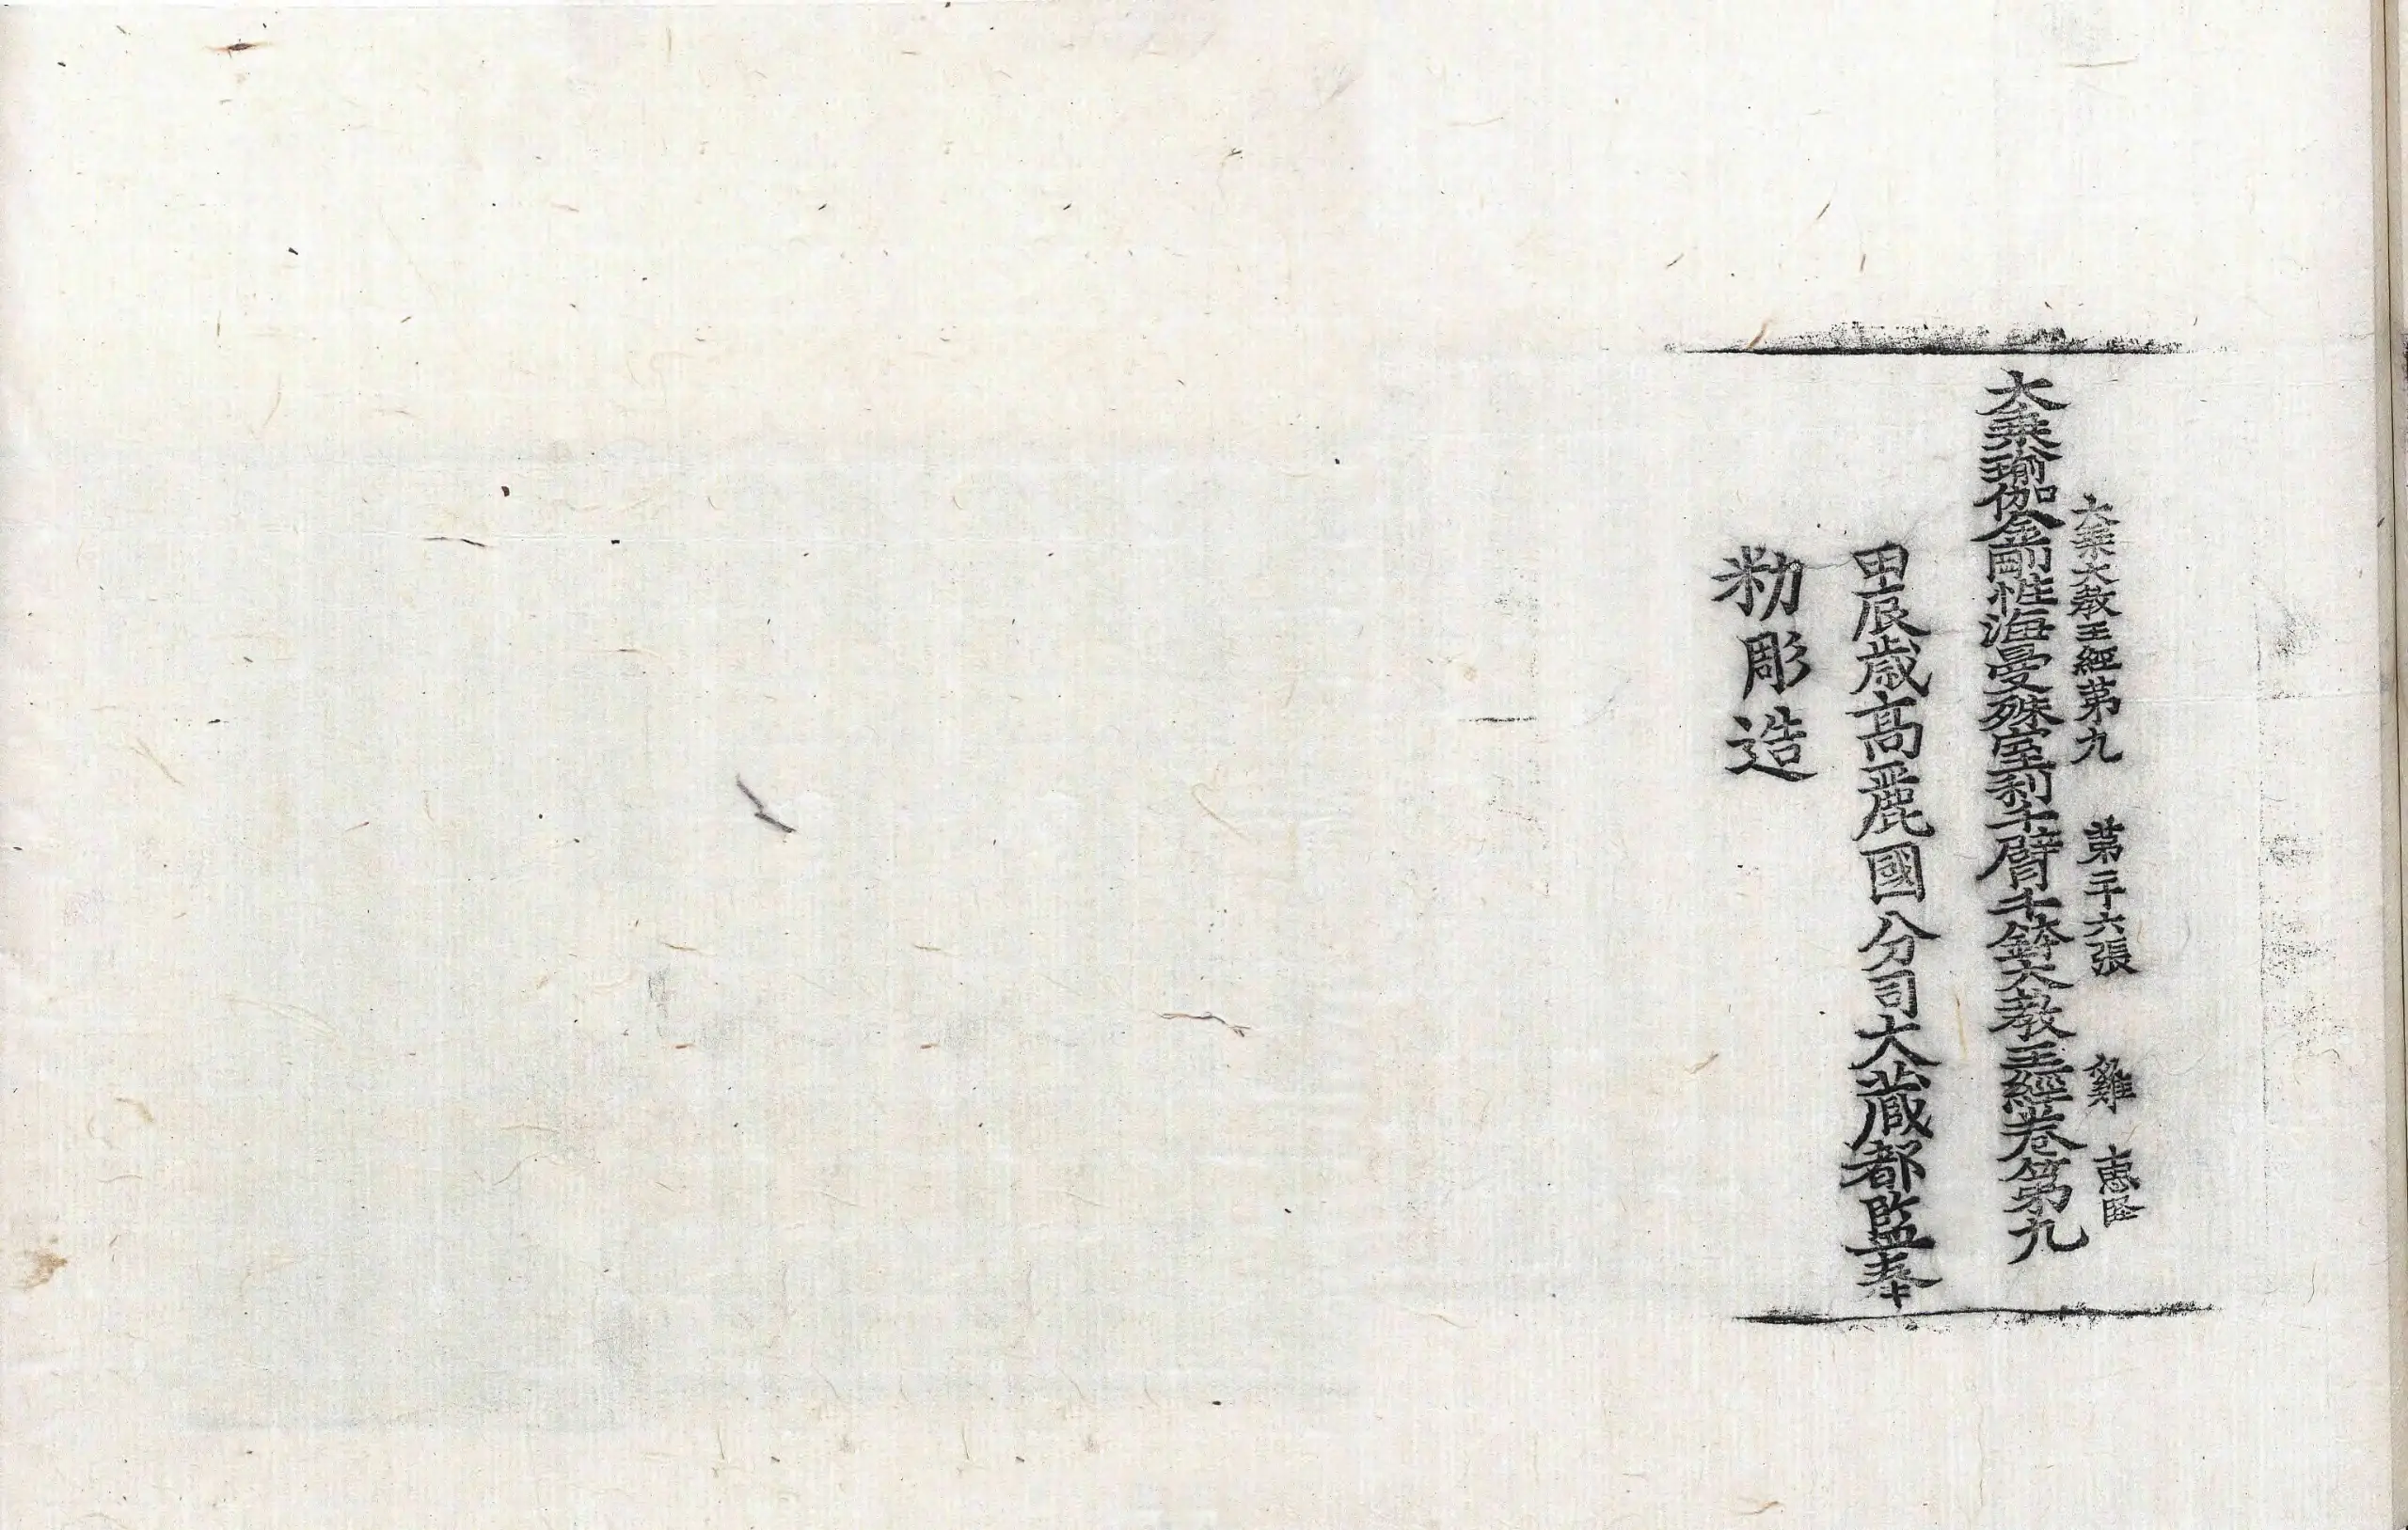 大乗大教王經第九　第二十六張　雞　惠堅
大乗瑜伽金剛性海曼殊室利千臂千鉢大教王經卷第九
甲辰歲高麗國分司大藏都監奉
勑彫造